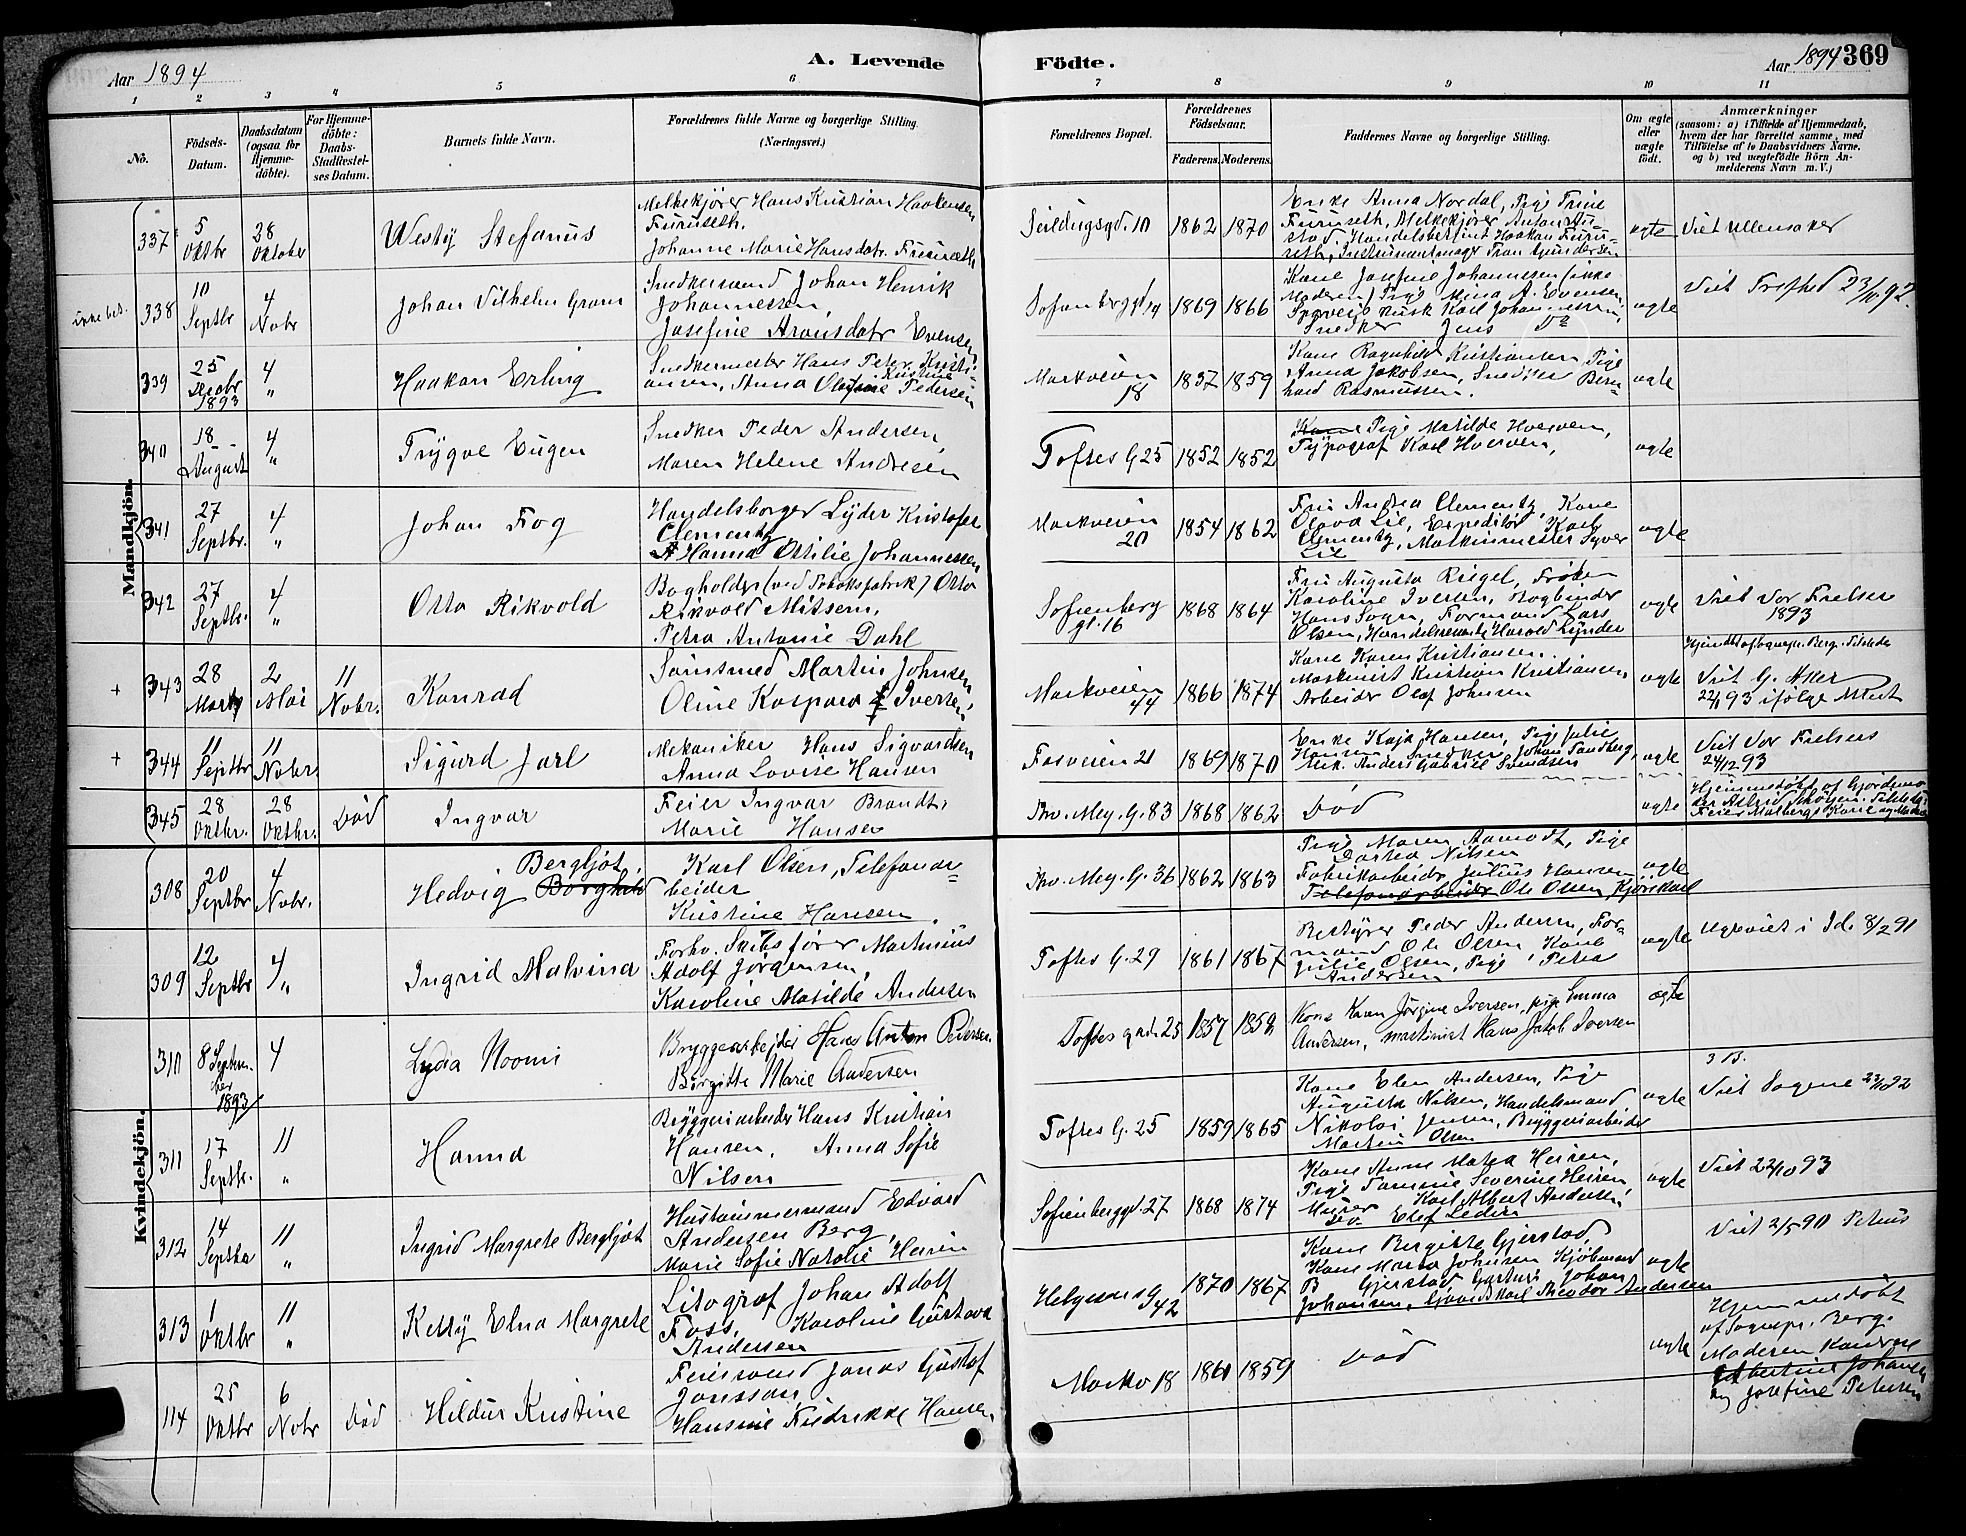 Aar 1894
A. Levende
Födte.
Aar 1894 369
1 2 3 4 5 6 7 8 9 10 11
No.
Födsels-
Datum.
Daabsdatum
(ogsaa for
Hjemme-
döbte).
For Hjemme-
döbte:
Daabs-
Stadfæstel-
ses Datum.
Barnets fulde Navn.
Forældrenes fulde Navne og borgerlige Stilling.
(Næringsvei.)
Forældrenes Bopæl.
Forældrenes
Födselsaar.
Faderens. Moderens.
Faddernes Navne og borgerlige Stilling.
Om ægte
eller
uægte
født.
Anmærkninger
(saasom: a) i Tilfælde af Hjemmedaab,
hvem der har forrettet samme, med
Tilföielse af to Daabsvidners Navne.
og b) ved uægtefödte Börn An-
melderens Navn m.V.)
Mandkjön.
337
5
Oktbr
28
Oktober
Westÿ Stefanus
Melkekjører Hans Kristian Haakensen
Furuseth.
Johanne Marie Hansdatr. Furuseth
1862 1870
Enke Anna Nordal, Pige Trine
Furuseth, Melkekjører Anton Au-
stad. Handelsbetjent Haakon Furu-
seth, Instrumentmager Tran Gundersen
ægte
Viet Ullensaker
338
10
Septbr
4
Novbr
Johan Vilhelm Gram
Snedkersvend Johan Henrik
Johannessen
Josefine Aronsdatr Evensen
Sofienberggd 14
1869 1866
Kone Josefine Johannessen (ikke
Moderen) Pige Mina A. Evensen,
Sporveis kusk Karl Johannessen,
Snedker Jens Do
ægte
Viet Trefhed 23/10 92.
339
25
Decbr
1893
4
"
Haakon Erling
Snedkermester Hans Peter Kristi-
ansen, Anna Olefine Kristine Pedersen
Markveien
18
1857 1859
Kone Ragnhild Kristiansen Pige
Anna Jakobsen, Snedker Bern-
hard Rasmussen.
ægte
340
18
August
4
"
Trÿgve Eugen
Snedker Peder Andersen,
Maren Helene Andresen
Toftes G 25
1852 1852
Pige Matilde Hverven,
Tÿpograf Karl Hverven,
ægte
341
27
Septbr.
4
"
Johan Fog
Handelsborger Lÿder Kristofer
Clementz
Hanna Ottilie Johannessen
Markveien
20
1854 1862
Fru Andrea Clementz, Kone
Olava Lie, Expeditør Karl
Clementz, Maskinmester Syver
Lie
ægte
342
27
Septbr.
4
"
Otto Rikvold
Bogholder (ved Tobaksfabrik) Otto
Rikvold Nilsen,
Petra Antonie Dahl
Sofienberg
gt. 16
1868 1864
Fru Augusta Riegel, Frøken
Karoline Iversen, Bogbinder
Hans Sogn, Formand Lars
Olsen, Handelsreisende Harald Lynder
ægte
Viet Vor Frelsers
1893
+ 343
28
Marts
2
Mai
11
Novbr.
Konrad
Somsmed Martin Johnsen
Oline Kaspara Iversen
Markveien
44
1866 1874
Kone Karen Kristiansen.
Maskinist Kristian Kristiansen,
Arbeider Olaf Johnsen
ægte
Viet G. Aker
22/1 93 ifølge Attest
+ 344
11
Septbr
11
Novbr.
Sigurd Jarl
Mekaniker Hans Sigvardsen
Anna Lovise Hansen
Fosveien 21
1869 1870
Enke Kaja Hansen, Pige Julie
Hansen Snedker Johan Sandberg,
Mek. Anders Gabriel Svendsen
ægte
Viet Vor Frelsers
24/12 93
345
28
Oktbr.
28
Oktbr.
Død
Ingvar
Feier Ingvar Brandt,
Marie Hansen
Thv. Mey. G. 83
1868 1862
Død
ægte
Hjemmedøbt af Gjordemo-
der Astrid Skøyen. Tilstede:
Feier Malbergs Kone og Moderen
Kvindekjön.
308
20
Septbr
4
Novbr.
Hedvig Borghild Bergljot
Karl Olsen, Telefonar-
beider
Kristine Hansen.
Thv. Mey. G. 36
1862 1863
Pige Maren Aamodt, Pige
Dorthea Nilsen
Fabrikarbeider Julius Hansen
Telefonarbeider Ole Olsen, Kjørekarl
ægte
309
12
Septbr
4
"
Ingrid Malvina
Forhv. Skibsfører Martinius
Adolf Jørgensen,
Karoline Matilde Andersen
Toftes G. 29
1861 1867
Bestyrer Peder Andersen, For-
mand Ole Olsen Kone
Julie Olsen, Pige Petra
Andersen
ægte
Ugeviet i Id. 8/2 91
310
8 Septem-
ber
1893
4
Lydia Noomi
Bryggerarbeider Hans Anton Pedersen
Birgitte Marie Andersen
Toftes gade 25
1857 1859
Kone Karen Jørgine Iversen, pige Emma
Andersen, maskinist Hans Jakob Iversen
ægte
311
17
Septbr.
11
"
Hanna
Brÿggeriarbeider Hans Kristian
Hansen, Anna Sofie
Nilsen
Toftes G. 25
1859 1865
Kone Elen Andersen, Pige
Augusta Nilsen, Handelsmand
Nikolai Jensen, Brÿggeriarbeider
Martin Olsen
ægte
3 B.
Viet Sagene 23/10 92
312
14
Septbr
11
"
Ingrid Margrete Bergljot
Hustømmermand Edvard
Andersen Berg,
Marie Sofie Natalie Heiren
Sofienberggd. 27
1868 1874
Kone Anne Matea Heiren,
Pige Tomine Severine Heiren
Murer Karl Albert Andersen,
do. Elef Leder
ægte
Viet 22/10 93
313
1
Oktbr
11
"
Kettÿ Elna Margrete
Litograf Johan Adolf
Foss, Karoline Gustava
Andersen
Helgesens G
42
1870 1867
Kone Bergitte Gjerstad,
Kone Marta Johnsen Kjøbmand
B Gjerstad Gartner Johan
Johansen, Gaardskarl Theodor Andersen
ægte
Viet 2/5 90 Petrus
114
25
Oktbr
6
Novbr
Død
Hildur Kristine
Feiersvend Jonas Gustaf
Jonsson,
Hansine Fredrikke Hansen.
Markv 18
1860 1859
Død
ægte
Hjemmedøbt
af Sognepr. Berg.
Moderen
Albertine Johansen
og Josefine Petersen